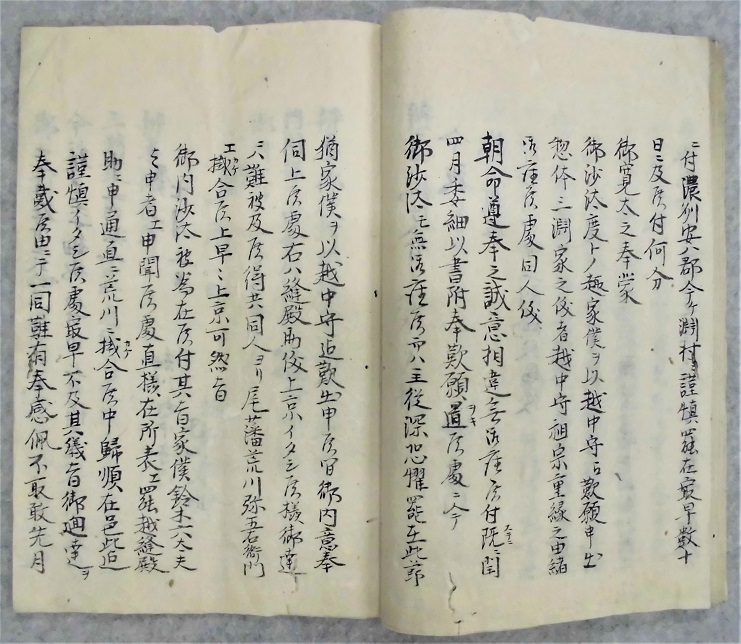 ニ付濃州安八郡今ヶ渕村ニ謹慎罷在最早数十
日ニ及候付何分
御寛大之奉蒙
御沙汰度卜ノ趣家僕ヲ以越中守ゟ歎願申出
惣体三渕家之儀者越中守祖宗重縁之由緒
有之候處同人儀
朝命尊奉之誠意相違無御座候付既ニ閏
四月委細以書附奉歎願置候處ニ今
御沙汰モ無御座候而ハ主従深恐懼罷在此節
猶家僕ヲ以越中守迄歎出申候間御内意奉
伺上候處右ハ縫殿助儀上京イタシ候様御達
ニ難被及候得共同人ヨリ尾藩荒川弥五右衛門
江掛合候上早々上京可然旨
御内沙汰被為在候付其旨家僕鈴木六太夫
ゟ申者江申聞候處直様在所表江罷越縫殿
助ニ申通直ニ荒川ニ掛合候中歸順在邑此迄
謹慎イタシ候處最早不及其儀旨御通達ヲ
奉戴候由ニテ一同難有奉感佩不取敢先月